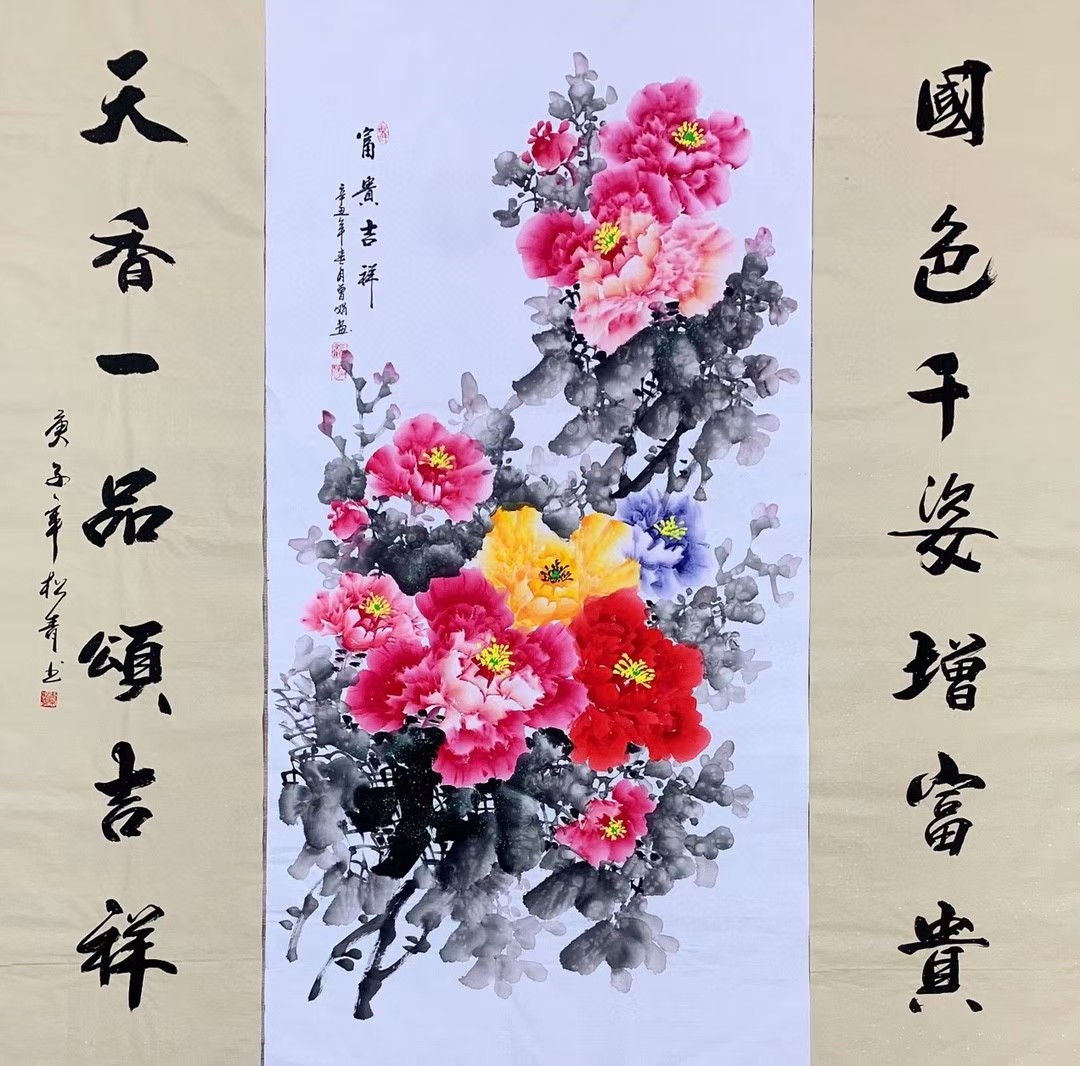 國色千姿增富貴
富貴吉祥
辛丑年春月曾娟畫
天香一品頌吉祥
庚子年松青书